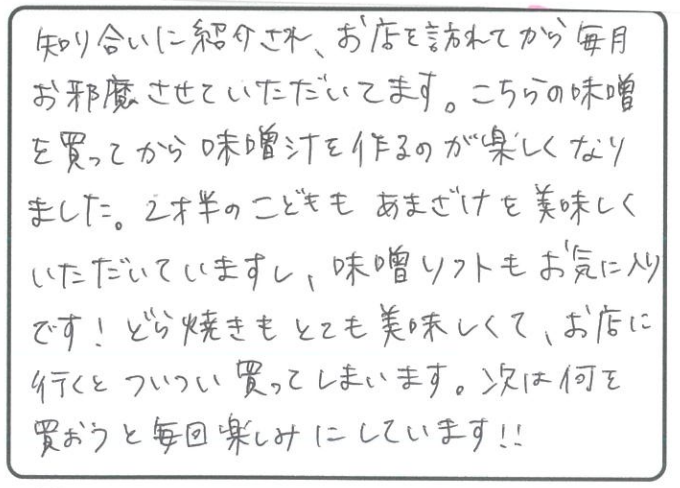 知り合いに紹介され、お店を訪れてから毎月
お邪魔させていただいてます。こちらの味噌
を買ってから味噌汁を作るのが楽しくなり
ました。2才半のこどもも あまざけを美味しく
いただいていますし、味噌ソフトもお気に入り
です！どら焼きもとても美味しくて、お店に
行くと ついつい 買ってしまいます。次は何を
買おうと毎回楽しみにしています!!